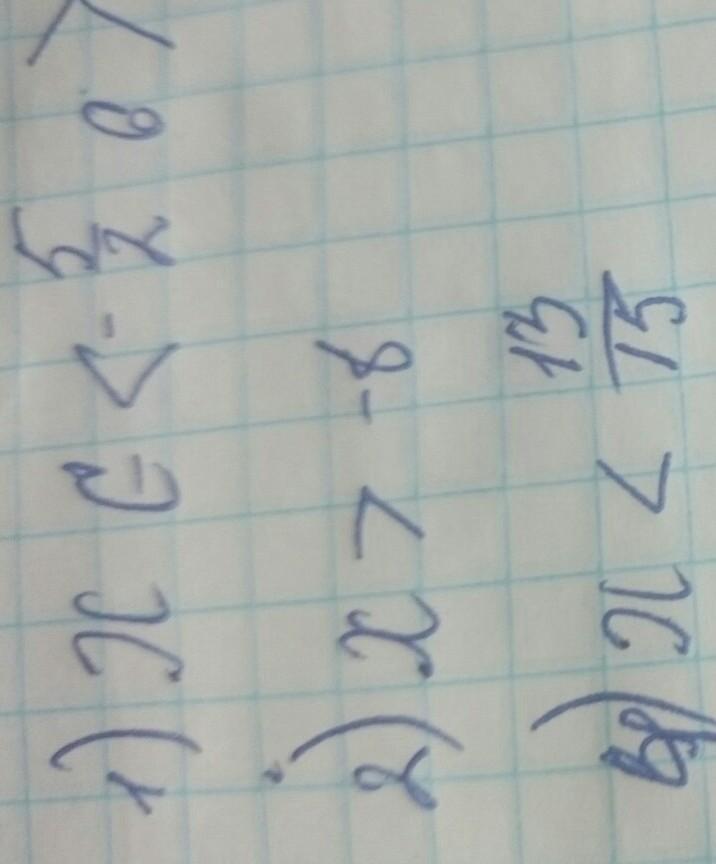 1) x ∈ <-5/2 0 >
2) x > -8
3) x < 13/15